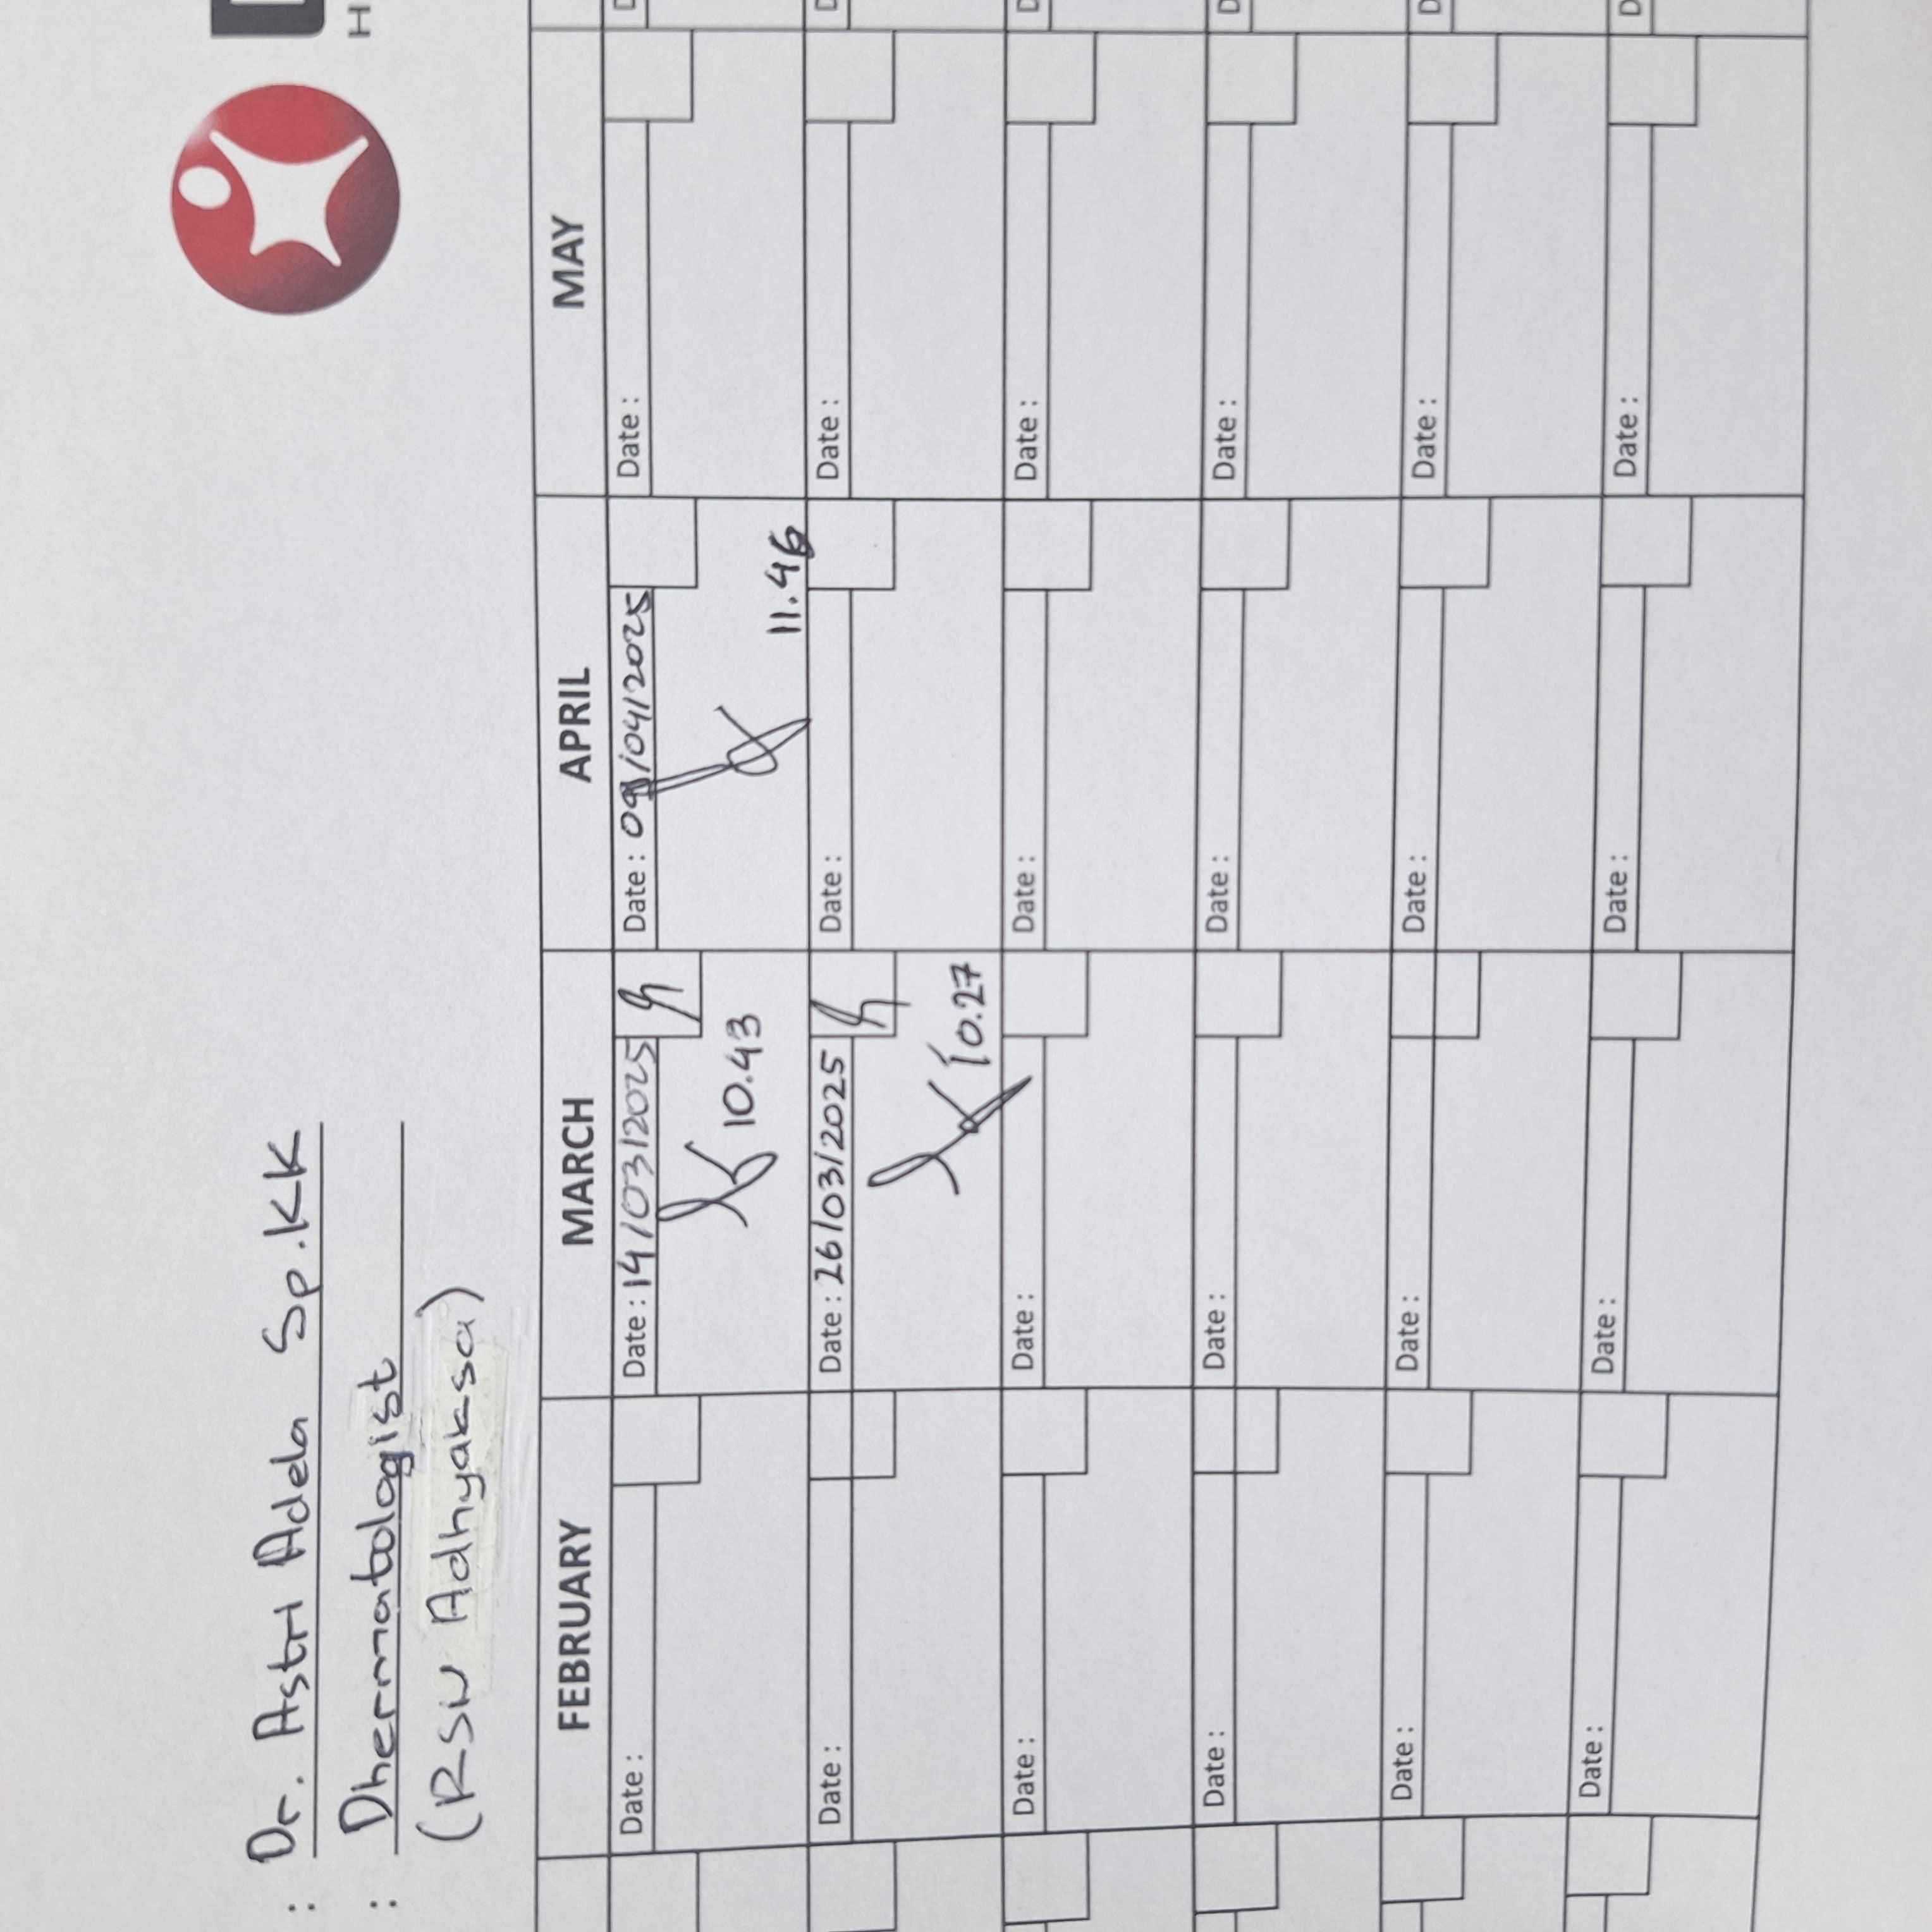 : Dr. Astri Adela Sp.KK
: Dhermatologist
(RSU Adhyaksa)
H
FEBRUARY MARCH APRIL MAY
Date : Date : 14/03/2025 Date : 09/04/2025 Date :
10.43 11.46
Date : Date : 26/03/2025 Date : Date :
10.27
Date : Date : Date : Date :
Date : Date : Date : Date :
Date : Date : Date : Date :
Date : Date : Date : Date :